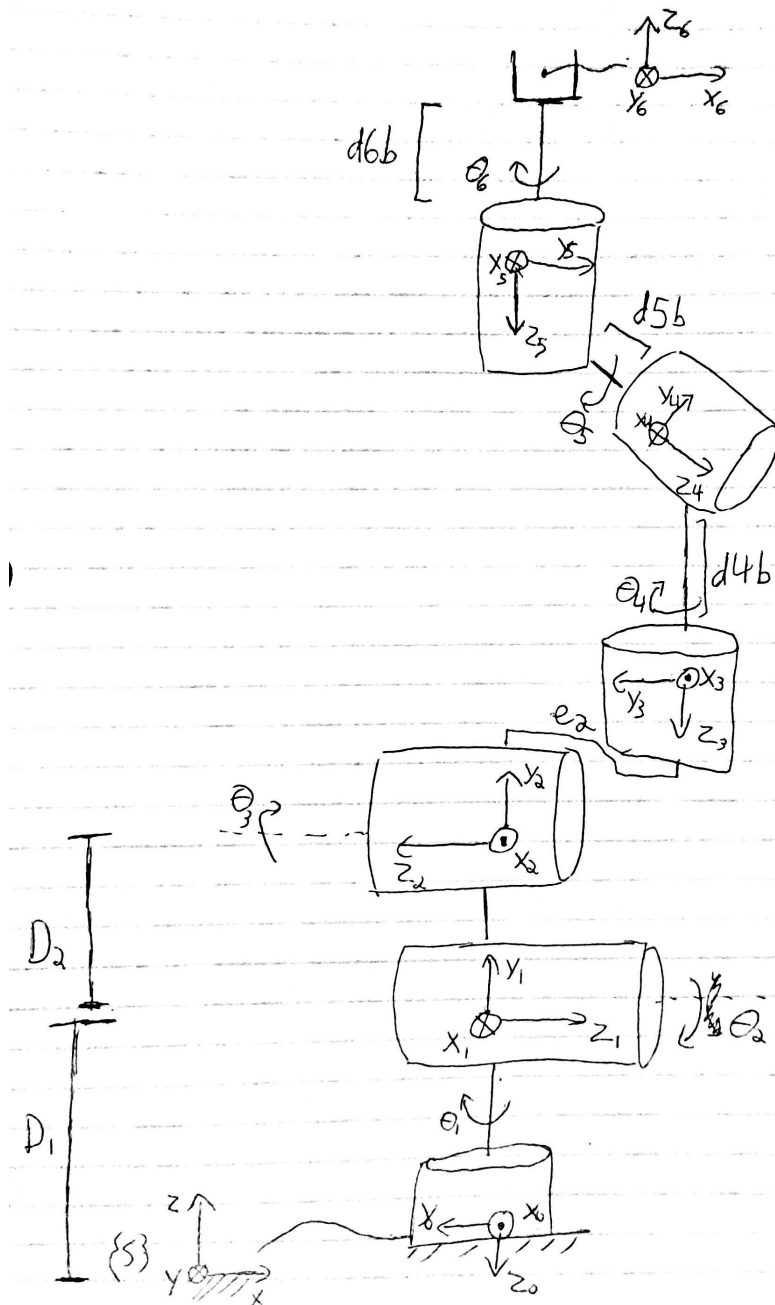 Z6
Y6 X6
d6b
θ6
X5 Y5
Z5
d5b
θ5
Y4
X4
Z4
d4b
θ4
Y3 X3
Z3
e2
θ3
Y2
Z2 X2
D2
Y1
X1 Z1
θ2
D1
θ1
Z
{S}
Y X
Y0 X0
Z0